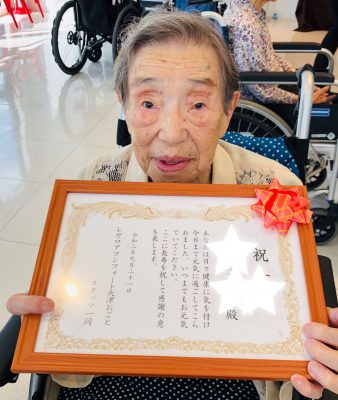 祝
殿
あなたは日々健康に気を付け
今日まで元気に過ごしてこら
れました いつまでもお元気
でいてください。
ここに長寿を祝して感謝の意
を表します。
令和二年九月二十一日
レガロアコンフォート大津おごと
スタッフ一同